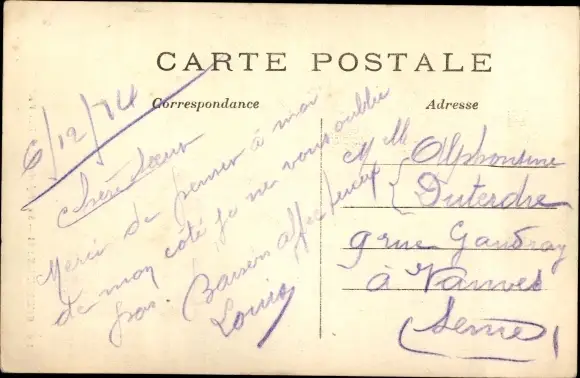 CARTE POSTALE
Correspondance
Adresse
6/12/14
Chère Sœur
Merci de penser à moi
de mon côté je ne vous oublie
pas. Baisers affectueux
Louis
Mlle Alphonsine
Duterdre
9 rue Gaudray
à Vanves
(Seine)